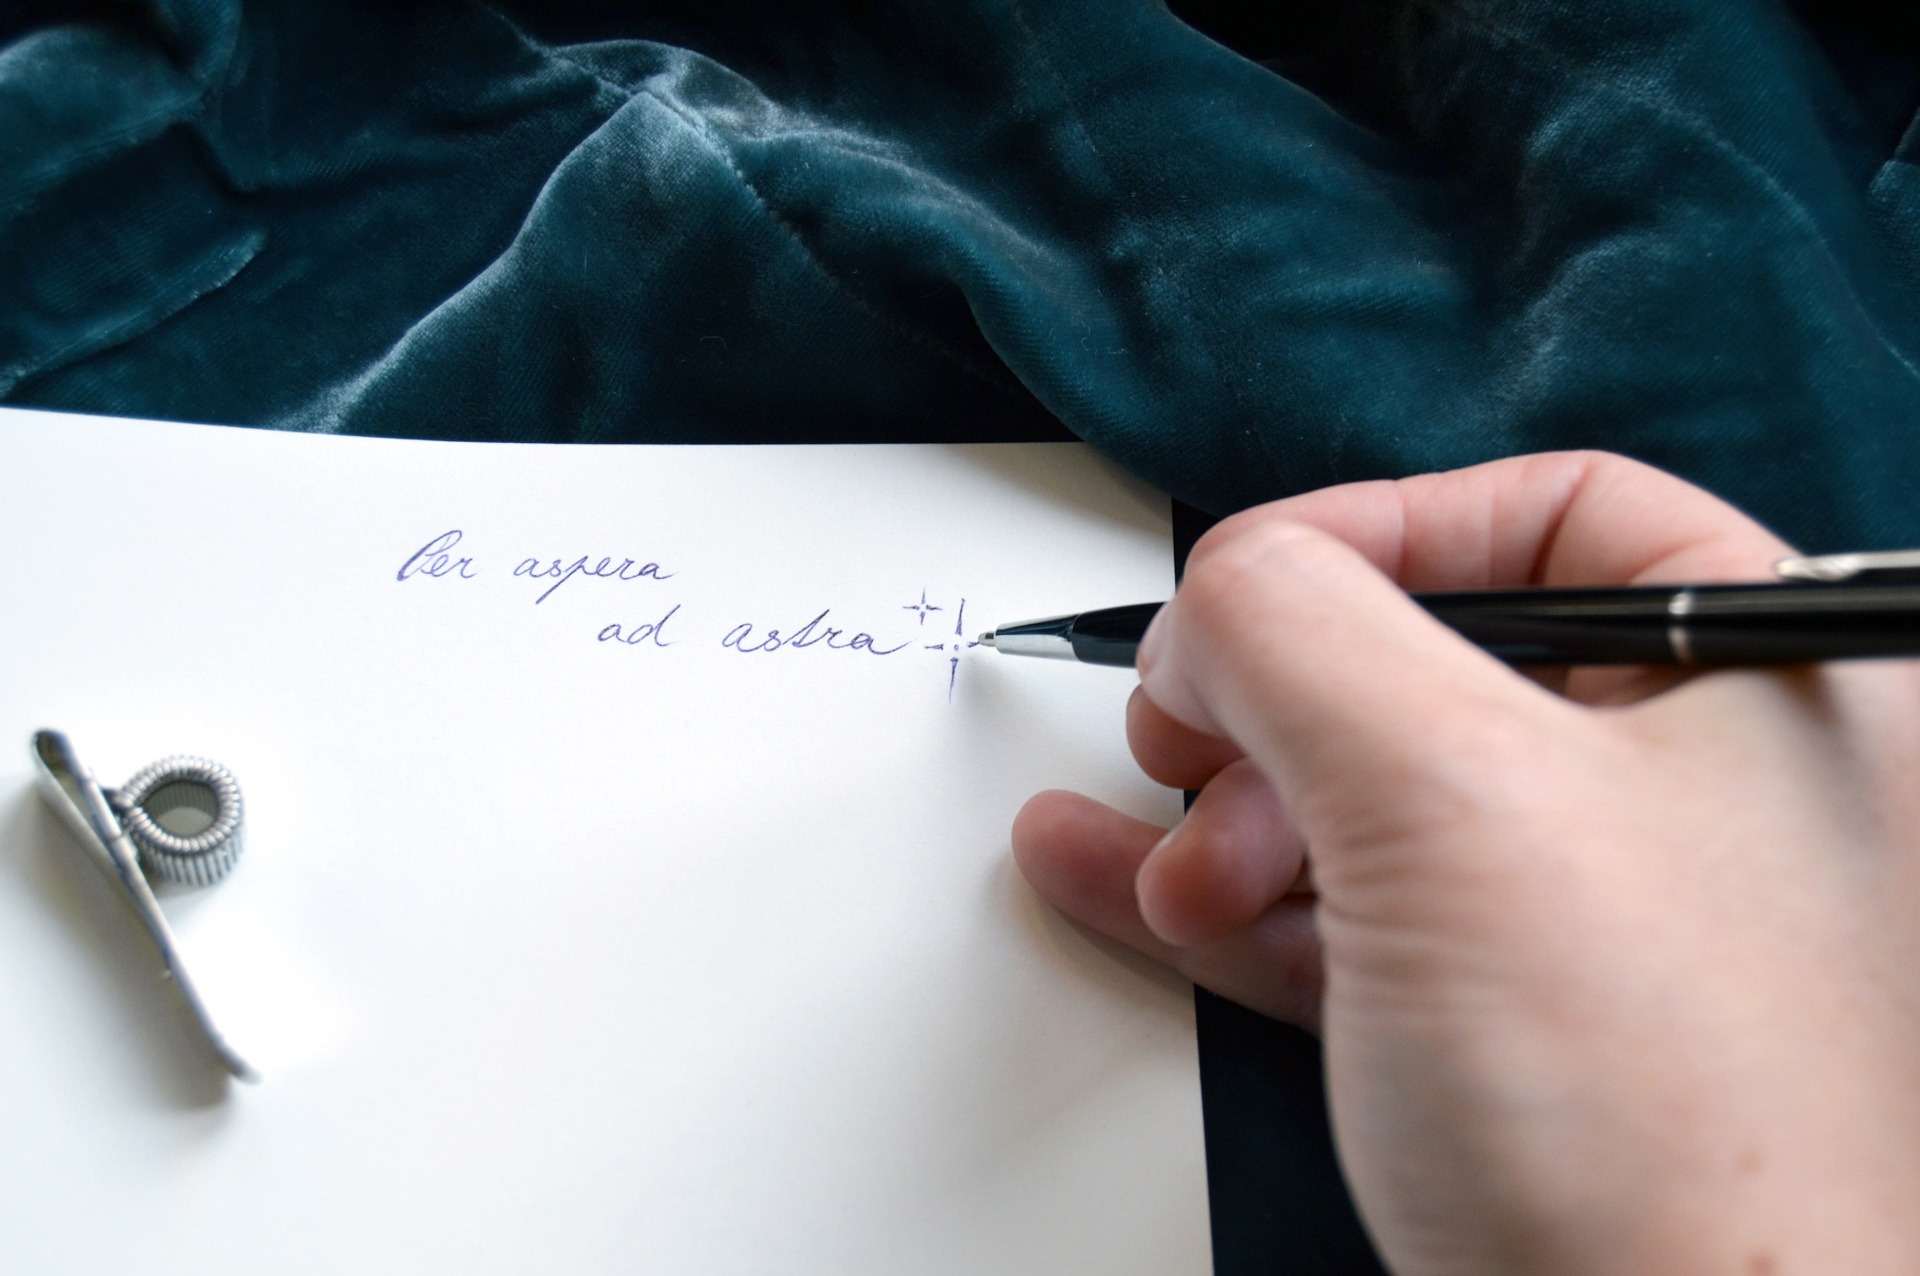 Per aspera
ad astra